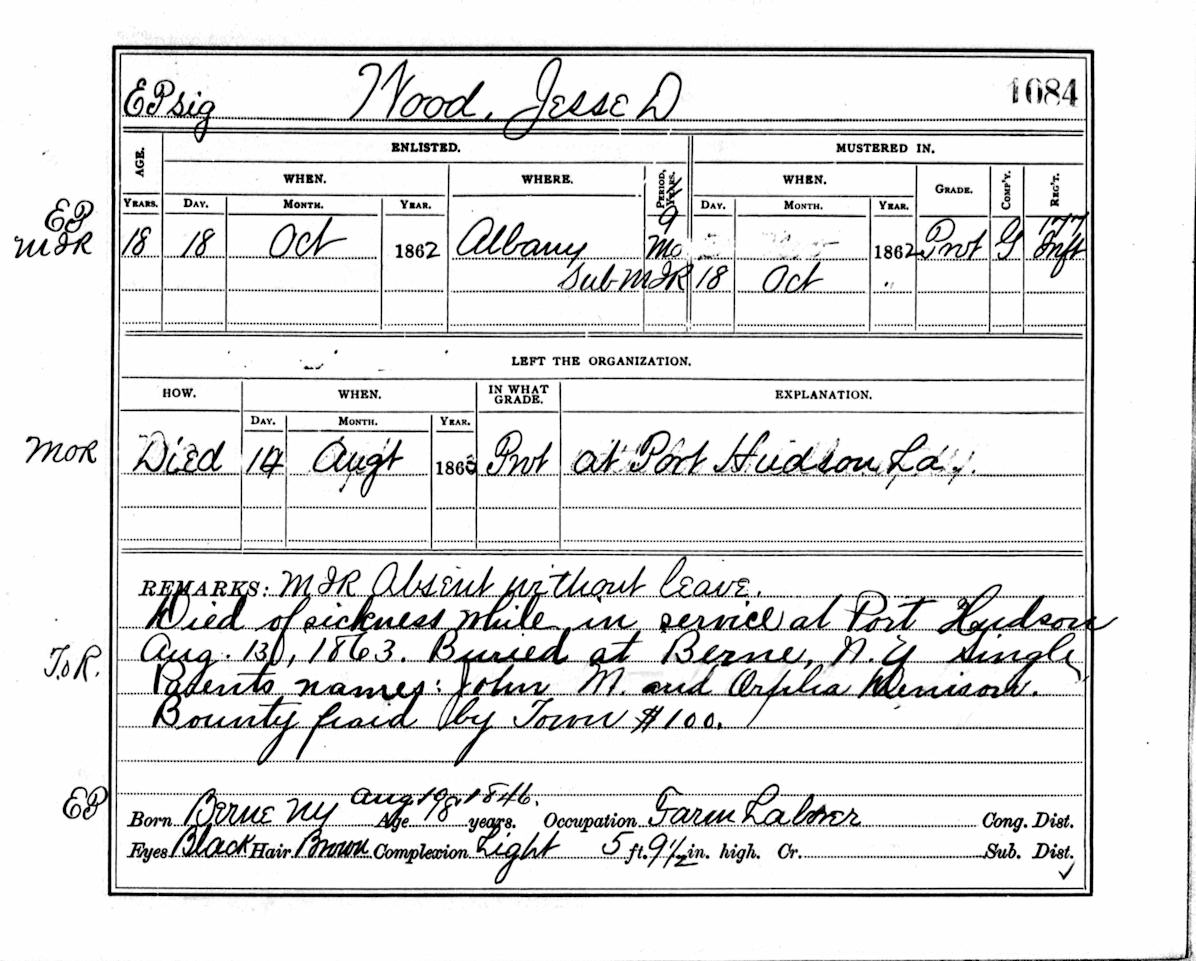 EPsig Wood, Jesse D 1084
AGE. ENLISTED. MUSTERED IN.
WHEN. WHERE. PERIOD, YEARS. WHEN. GRADE. COMP'Y. REG'T.
YEARS. DAY. MONTH. YEAR. DAY. MONTH. YEAR.
EP 9 177
MIR 18 18 Oct 1862 Albany Mo 1862 Pvt G Inft
Sub MIR 18 Oct "
LEFT THE ORGANIZATION.
HOW. WHEN. IN WHAT GRADE. EXPLANATION.
DAY. MONTH. YEAR.
MOR Died 14 Augt 1863 Pvt at Port Hudson, La.
REMARKS: MIR Absent without leave.
Died of sickness while in service at Port Hudson
ToR. Aug. 13, 1863. Buried at Berne, N.Y Single
Parents names: John M. and Orpha Denison.
Bounty paid by Town $100.
EP Born Berne NY Aug 19, 1846. Age 18 years. Occupation Farm Laborer Cong. Dist.
Eyes Black Hair Brown Complexion Light 5 ft. 9½ in. high. Cr. Sub. Dist.